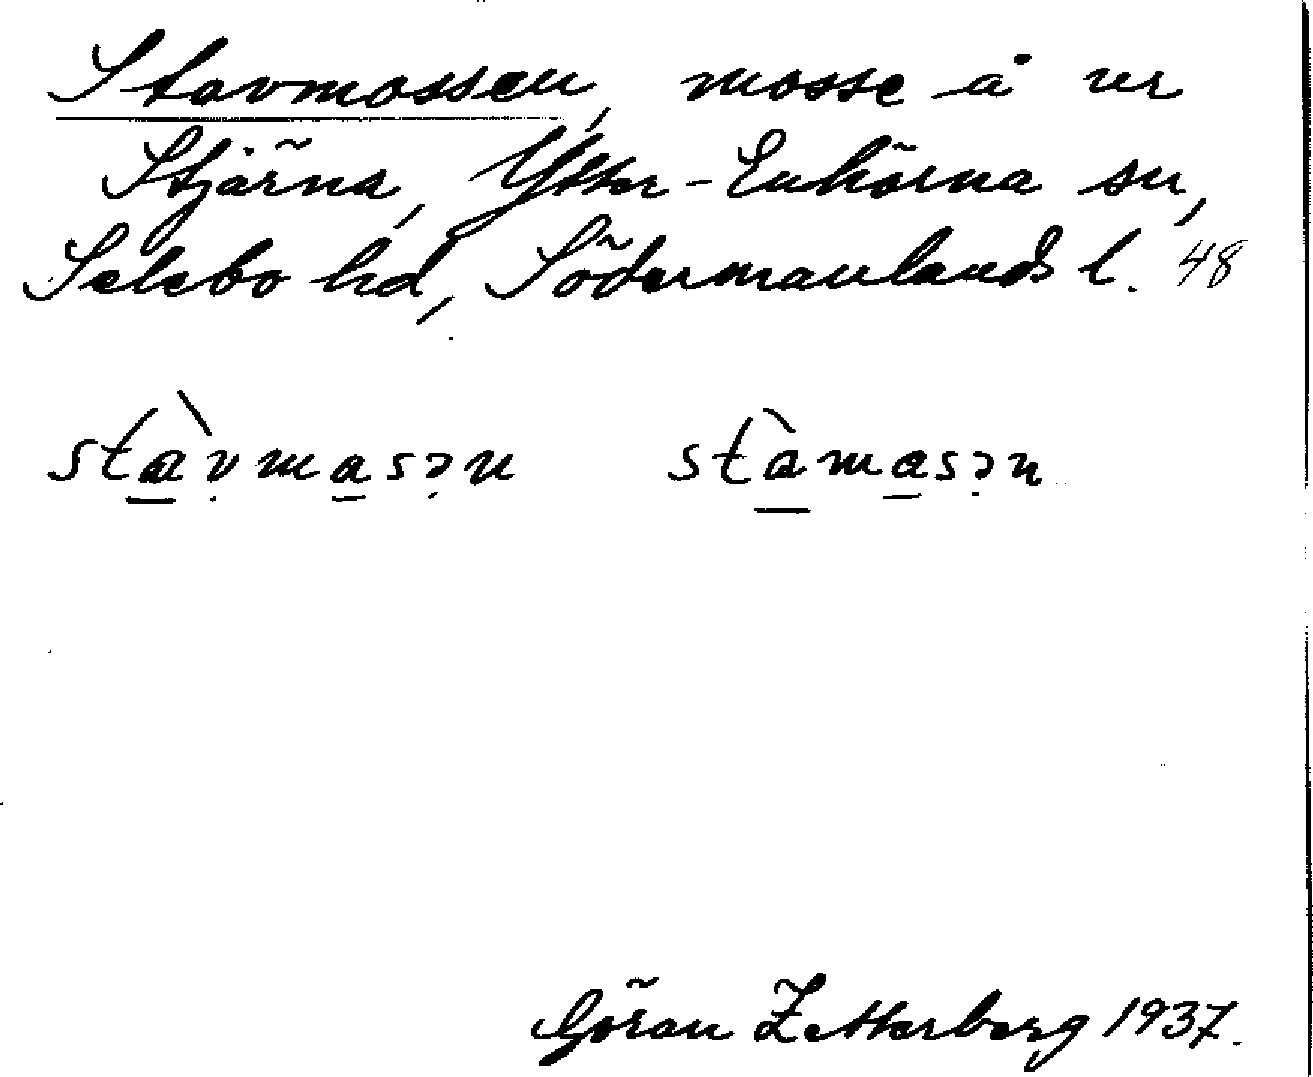 Stavmossen, mosse å ver
Stjärna, Ytter-Enhörna sn,
Selebo hd, Södermanlands l. 48
stàvmasən stàmasən
Göran Zetterberg 1937.